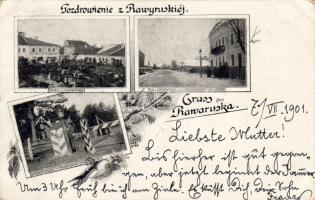 Pozdrowienie z Rawyruskiéj.
Gruss aus
Rawaruska.
7/VII 1901.
Liebste Mutter!
Bis hierher ist gut gegan-
gen, aber jetzt beginnt der Jammer.
Um 3 Uhr früh bin ich am Ziele. Es küsst Dich, dein Sohn
Franz